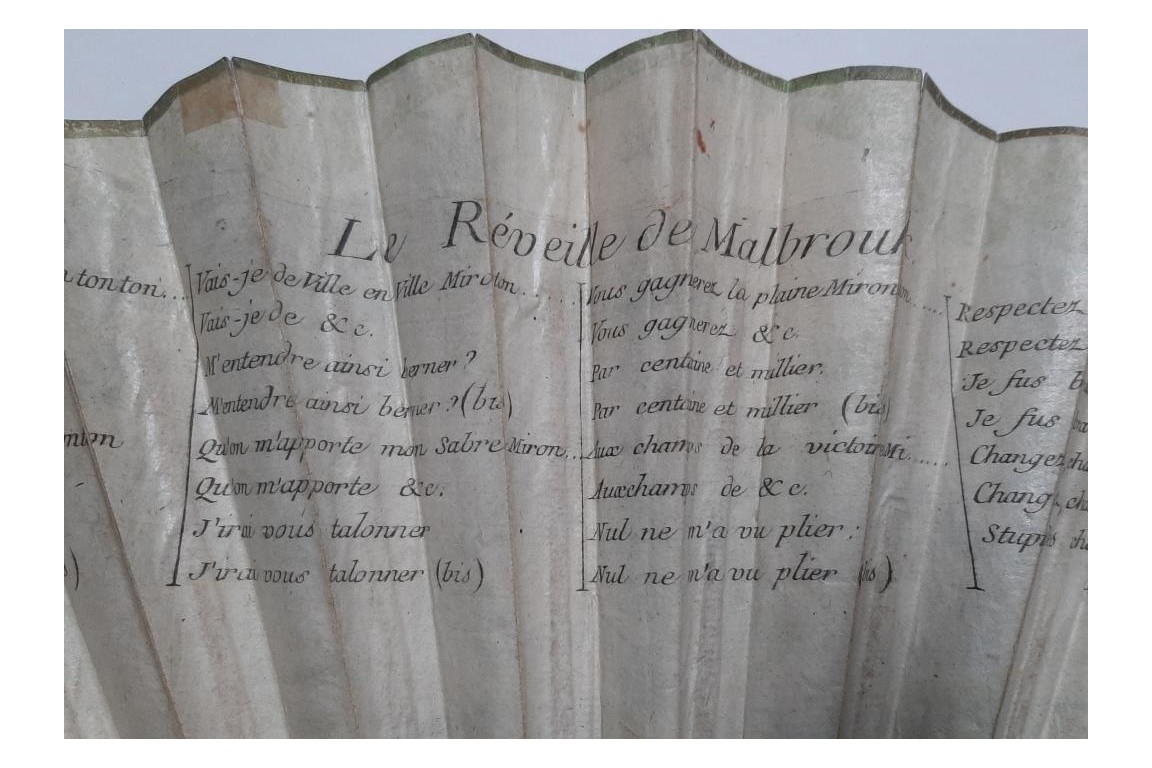 Le Réveille de Malbrouk
tonton...
Vais-je de Ville en Ville Miroton......
Vais-je de &c.
M'entendre ainsi berner?
M'entendre ainsi berner? (bis)
Qu'on m'apporte mon Sabre Miron...
Qu'on m'apporte &c.
J'irai vous talonner
J'irai vous talonner (bis)
Vous gagnerez la plaine Mironton.....
Vous gagnerez &c.
Par centaine et millier.
Par centaine et millier (bis)
Aux champs de la victoire Mi......
Aux champs de &c.
Nul ne m'a vu plier:
Nul ne m'a vu plier (bis)
Respectez
Respectez
Je fus
Je fus
Changez
Chang
Stupis